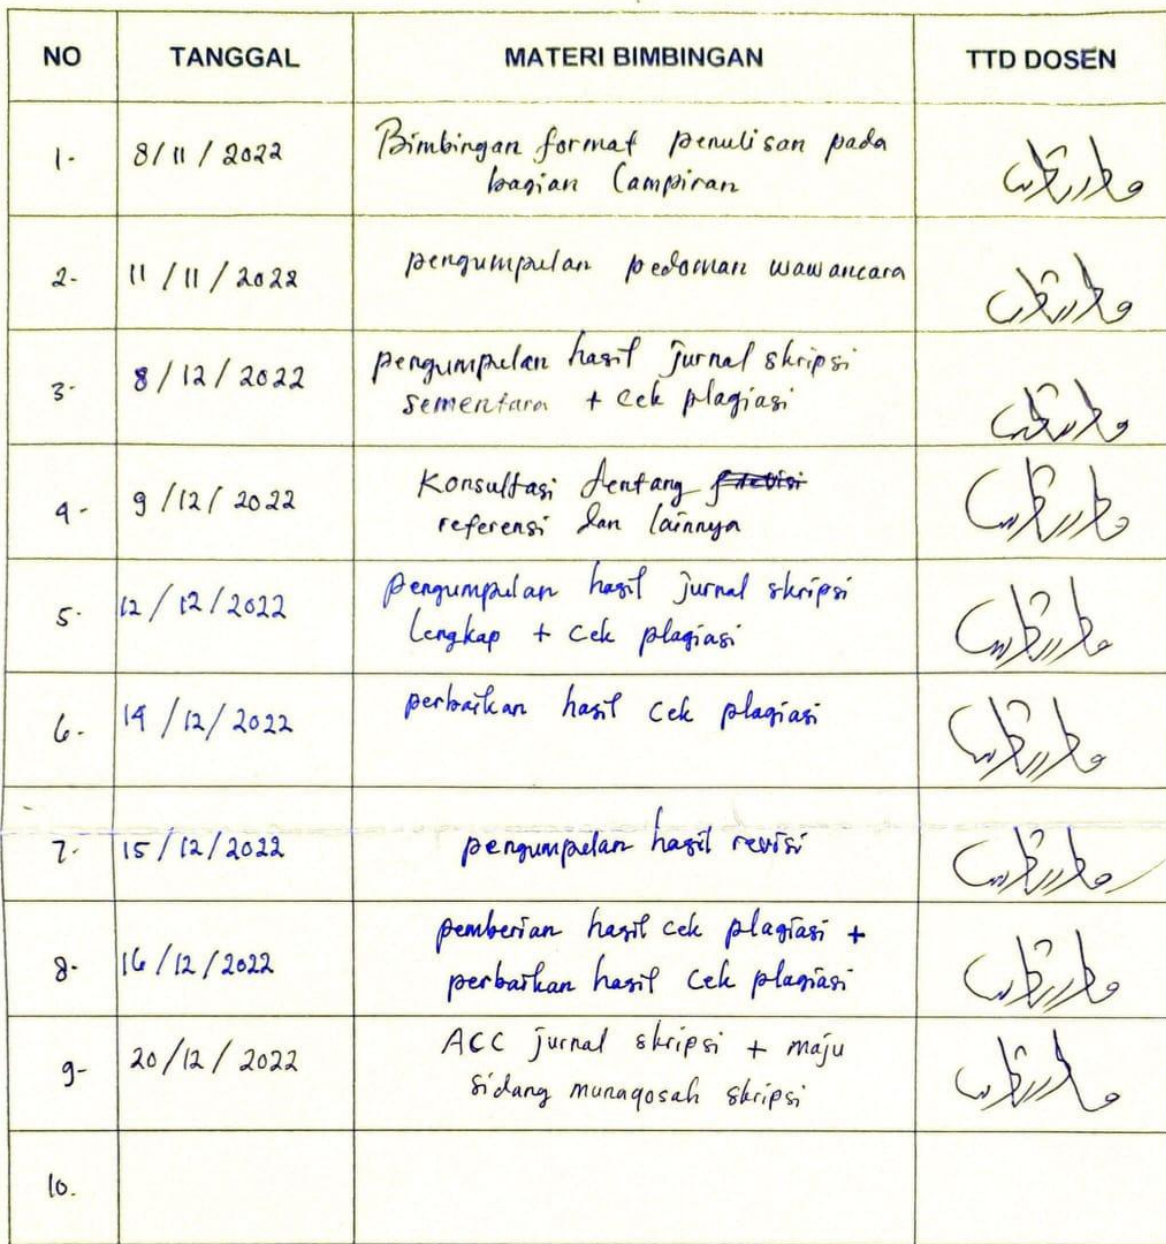 NO TANGGAL MATERI BIMBINGAN TTD DOSEN
1. 8/11/2022 Bimbingan format penulisan pada
bagian lampiran
2. 11/11/2022 pengumpulan pedoman wawancara
3. 8/12/2022 pengumpulan hasil jurnal skripsi
sementara + cek plagiasi
4. 9/12/2022 Konsultasi tentang
referensi dan lainnya
5. 12/12/2022 pengumpulan hasil jurnal skripsi
lengkap + cek plagiasi
6. 14/12/2022 perbaikan hasil cek plagiasi
7. 15/12/2022 pengumpulan hasil revisi
8. 16/12/2022 pemberian hasil cek plagiasi +
perbaikan hasil cek plagiasi
9. 20/12/2022 ACC jurnal skripsi + maju
sidang munaqosah skripsi
10.